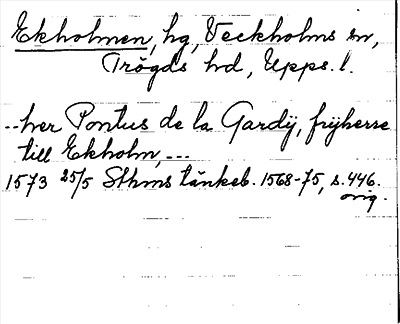 Ekholmen, hg, Veckholms sn,
Trögds hd, Upps. l.
--her Pontus de la Gardij, frijherre
till Ekholm, ---
1573 25/5 Sthms tänkeb. 1568-75, s. 446.
orig.